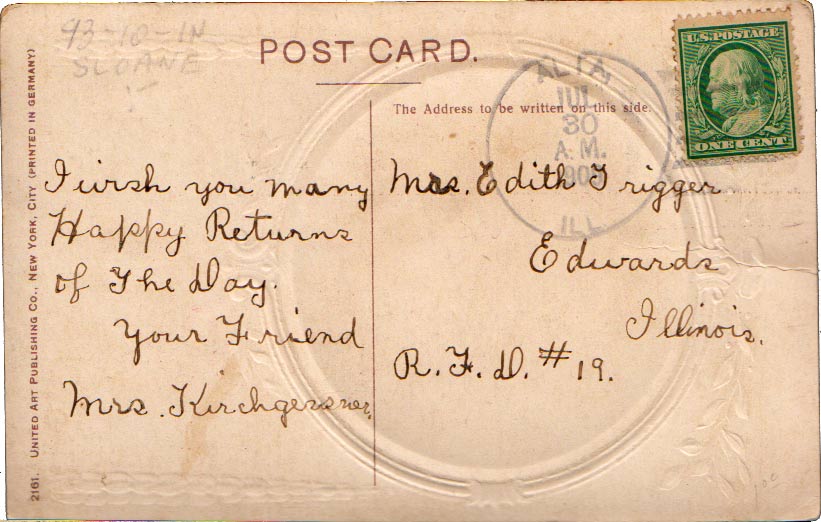 93-10-1N
SLOANE
POST CARD.
U.S. POSTAGE
ONE CENT
ALTA,
JUL
30
A.M.
190
ILL
The Address to be written on this side.
I wish you many
Happy Returns
of The Day.
Your Friend
Mrs. Kirchgessner.
Mrs. Edith Trigger
Edwards
Illinois.
R.F.D. #19.
2161. UNITED ART PUBLISHING CO., NEW YORK, CITY (PRINTED IN GERMANY)